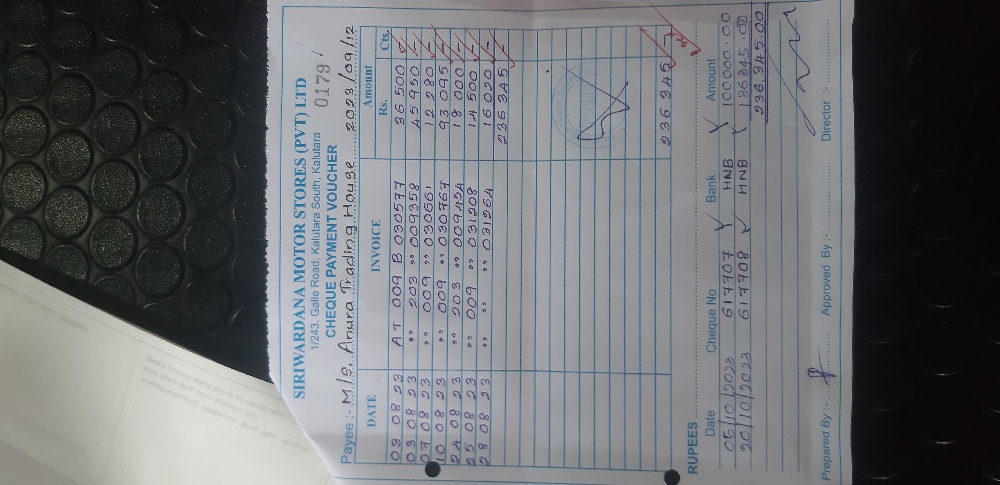 SIRIWARDANA MOTOR STORES (PVT) LTD
1/243, Galle Road, Kalutara South, Kalutara
CHEQUE PAYMENT VOUCHER 0179
Payee :- M/s. Anura Trading House 2023/09/12
DATE INVOICE Amount
Rs. Cts.
03 08 23 AT 009 B 030577 36 500 -
03 08 23 " 203 " 009358 45 950 -
07 08 23 " 009 " 030661 12 280 -
10 08 23 " 009 " 030767 93 095 -
24 08 23 " 203 " 009454 18 000 -
25 08 23 " 009 " 031208 14 500 -
28 08 23 " " 031264 16 020 -
236 345 -
236 345 -
RUPEES
Date Cheque No Bank Amount
05/10/2023 617707 HNB 100000.00
20/10/2023 617708 HNB 136345.00
236 345.00
Prepared By :- Approved By :- Director :-